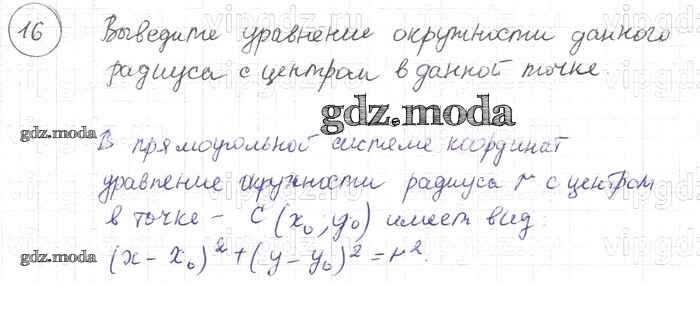 16 Выведите уравнение окружности данного
радиуса с центром в данной точке.
gdz.moda
gdz.moda
В прямоугольной системе координат
уравнение окружности радиуса r с центром
в точке - C (x₀; y₀) имеет вид:
(x - x₀)² + (y - y₀)² = r².
gdz.moda